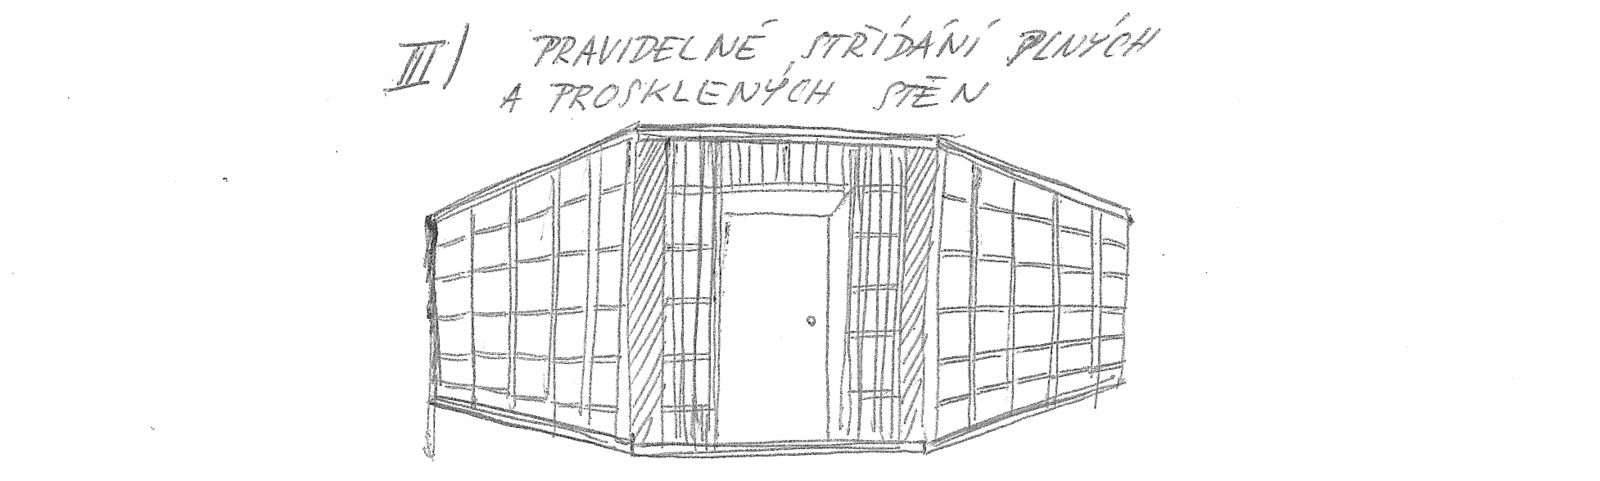 III/ PRAVIDELNÉ STŘÍDÁNÍ PLNÝCH
A PROSKLENÝCH STĚN